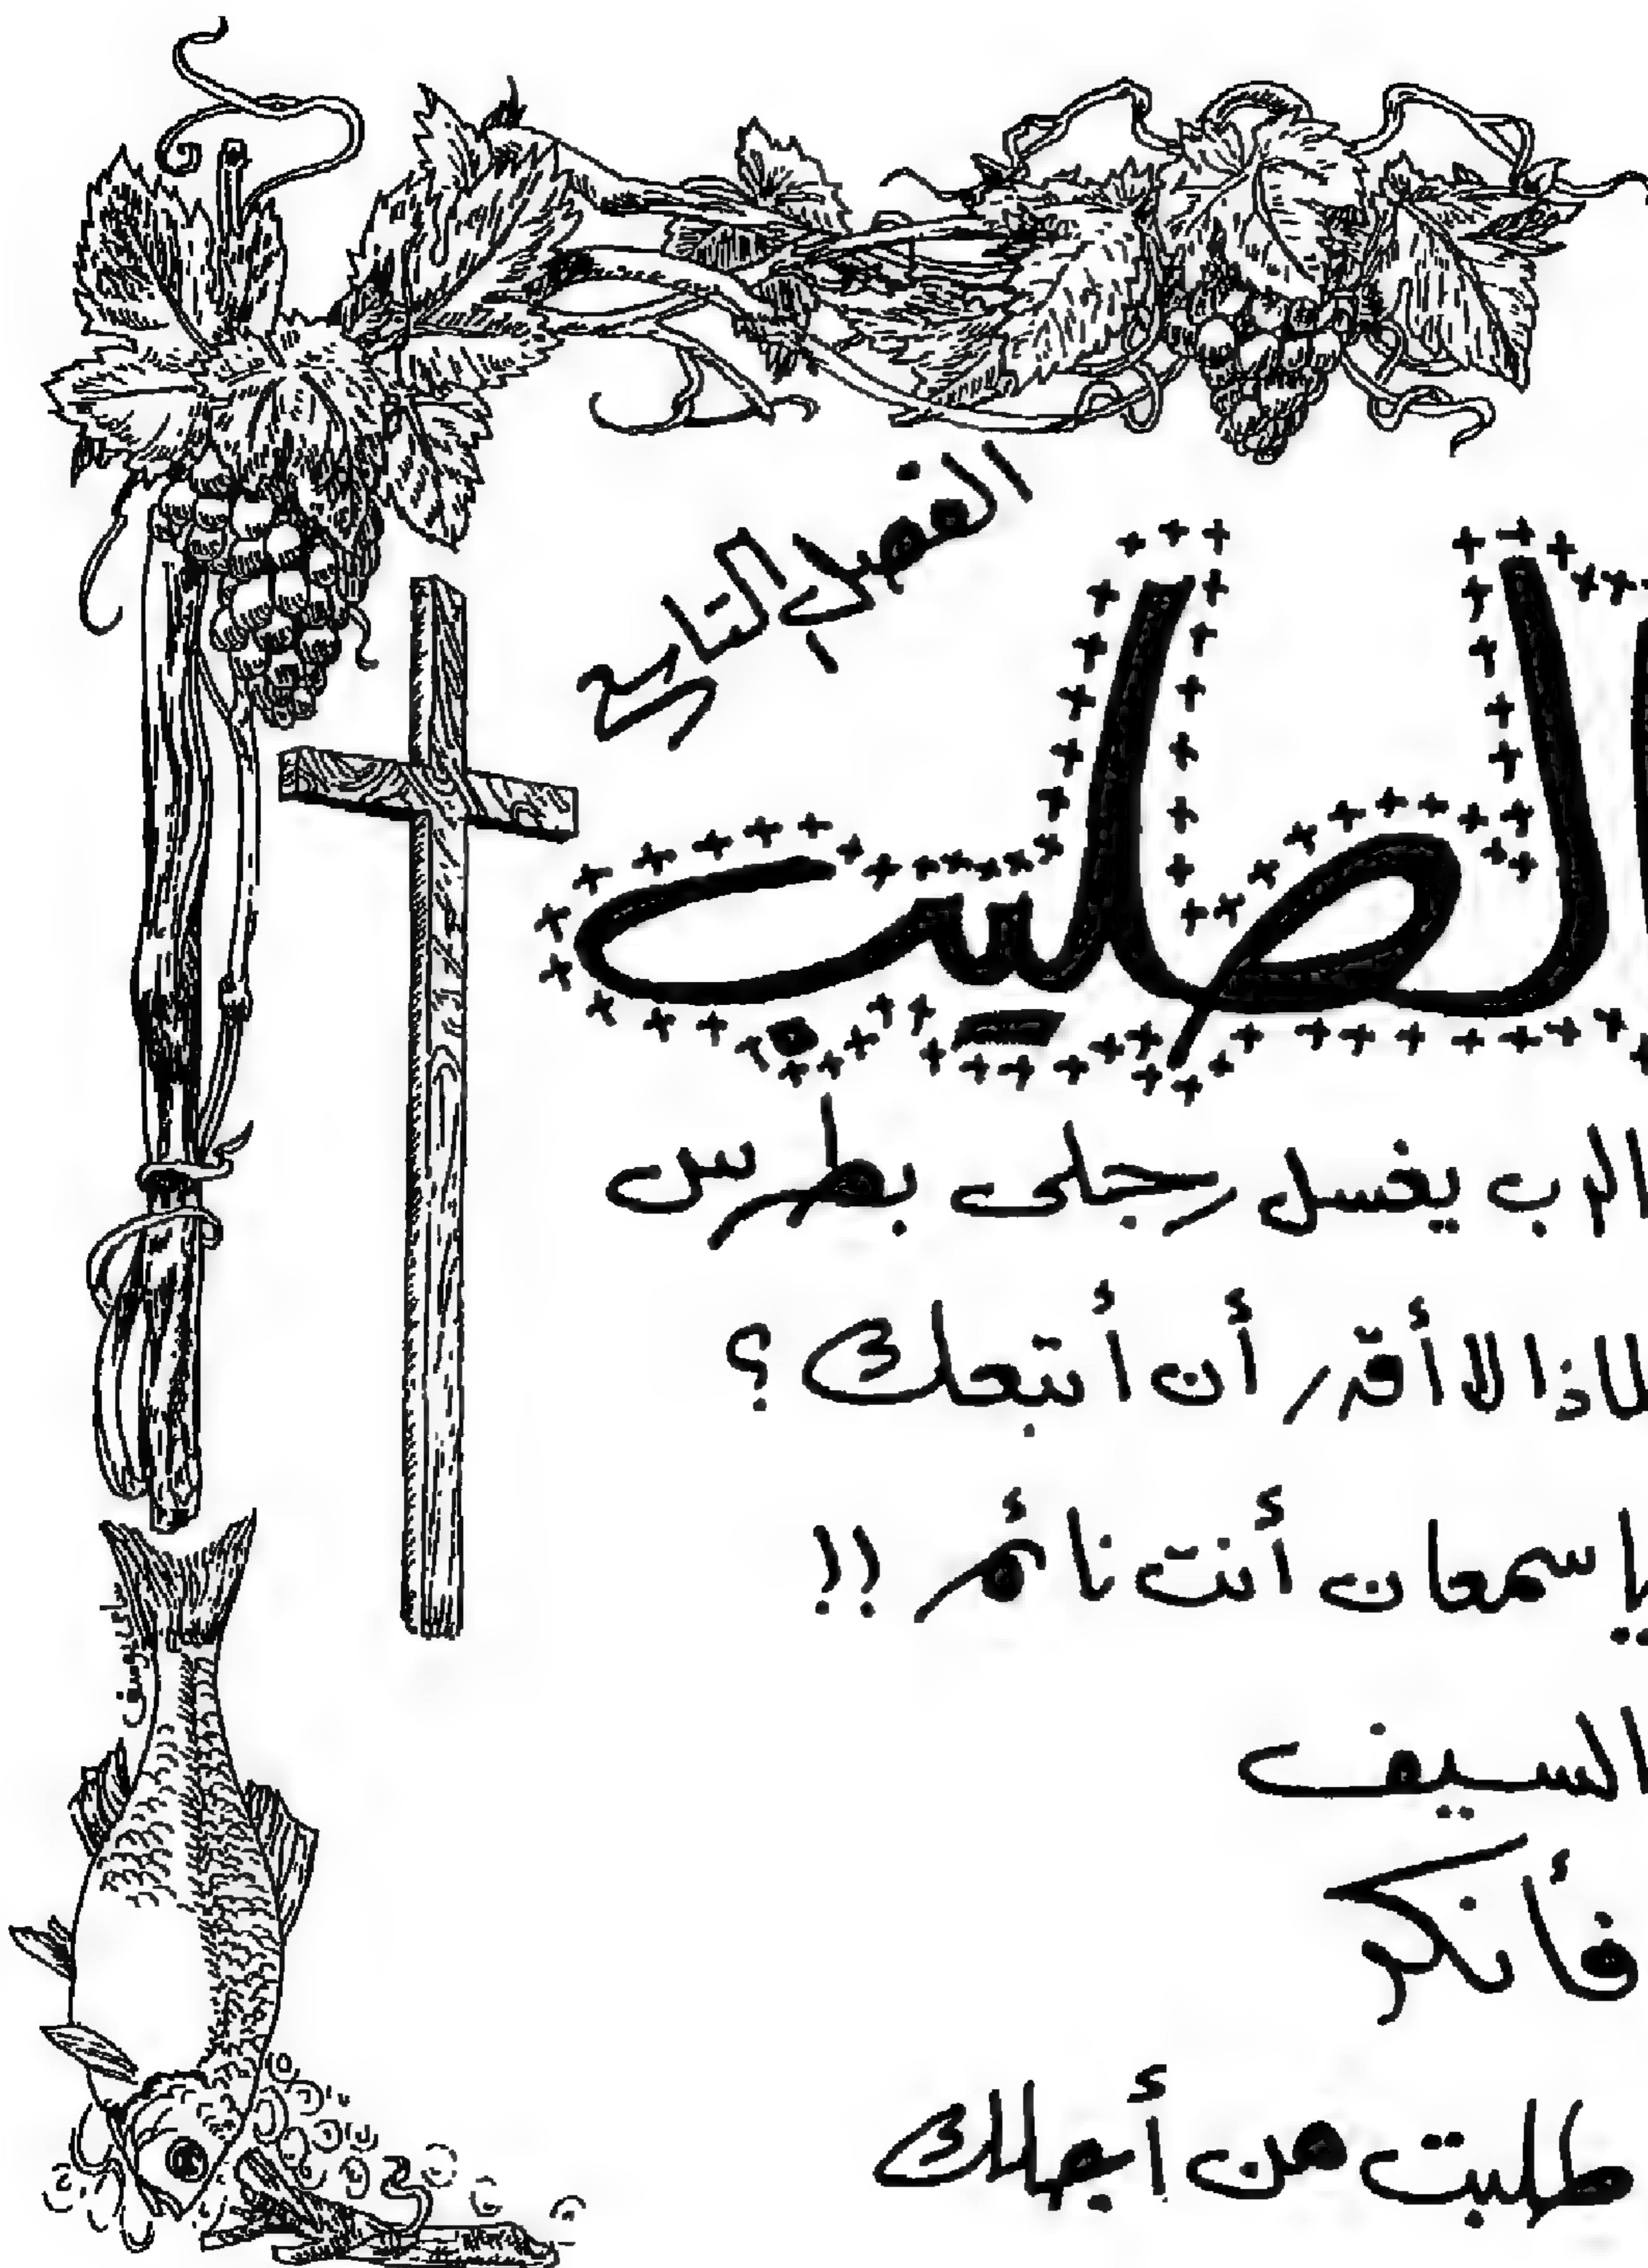 الفصل التاسع
الصليب
الرب يغسل رجلى بطرس
لماذا لا أقدر أن أتبعك ؟
ياسمعان أنت نائم !!
السيف
فأنكر
طلبت من أجلك